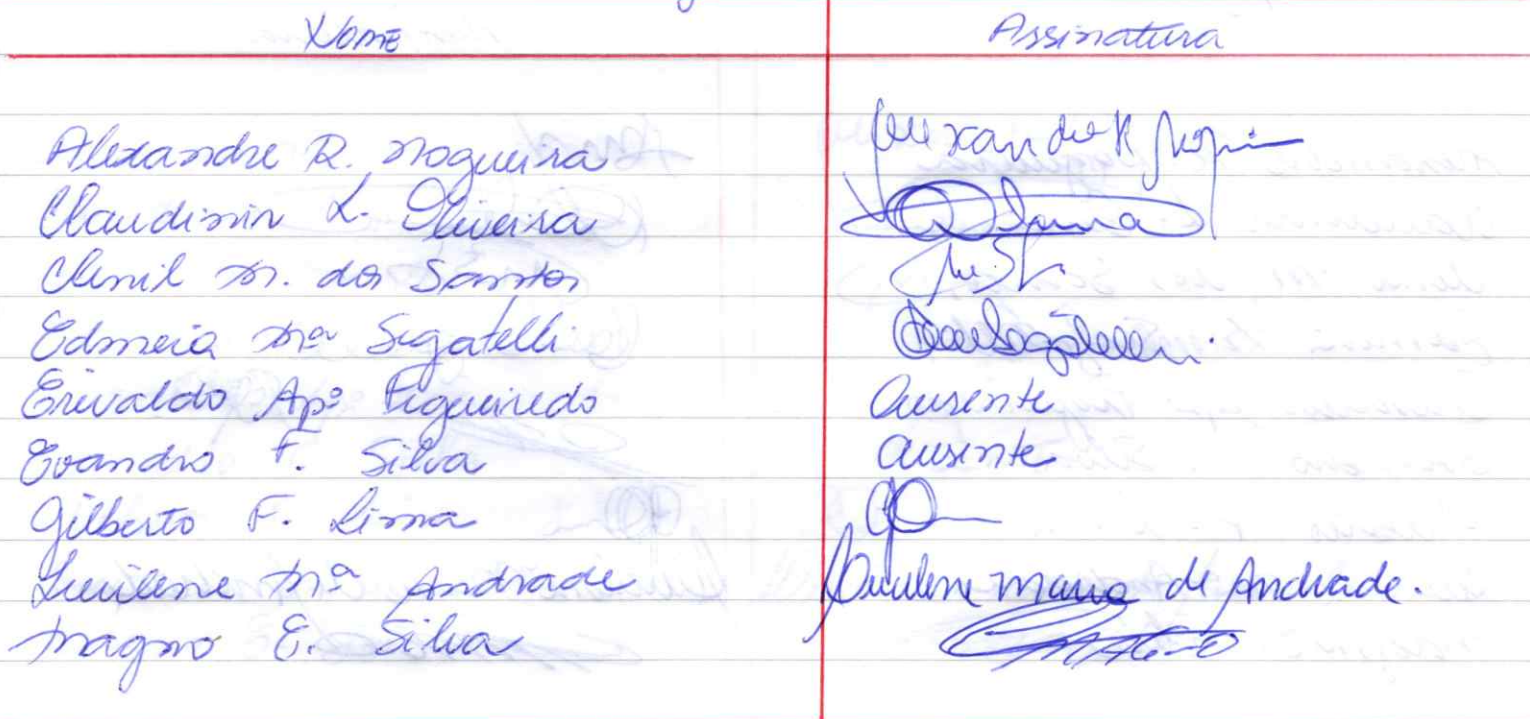 Nome Assinatura
Alexandre R. Nogueira Alexandre R
Claudinir L. Oliveira
Clenil M. dos Santos
Edmeia Mª Segatelli
Erivaldo Apº Figueiredo Ausente
Evandro F. Silva ausente
Gilberto F. Lima
Lucilene Mª Andrade Lucilene Maria de Andrade.
Magno E. Silva